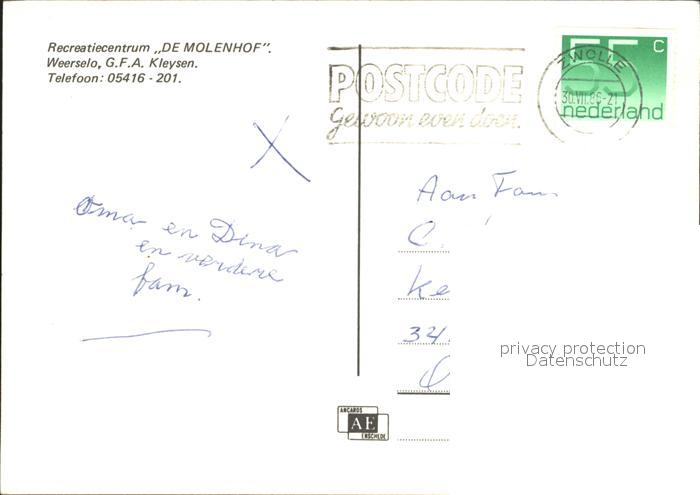 Recreatiecentrum „DE MOLENHOF".
Weerselo, G.F.A. Kleysen.
Telefoon: 05416 - 201.
POSTCODE
gewoon even doen.
ZWOLLE
30.VII.86-21
55 c
nederland
X
Oma en Dina
en verdere
fam.
Aan Fam
C.
Ke
34
privacy protection
Datenschutz
ANCAROS
AE
ENSCHEDE